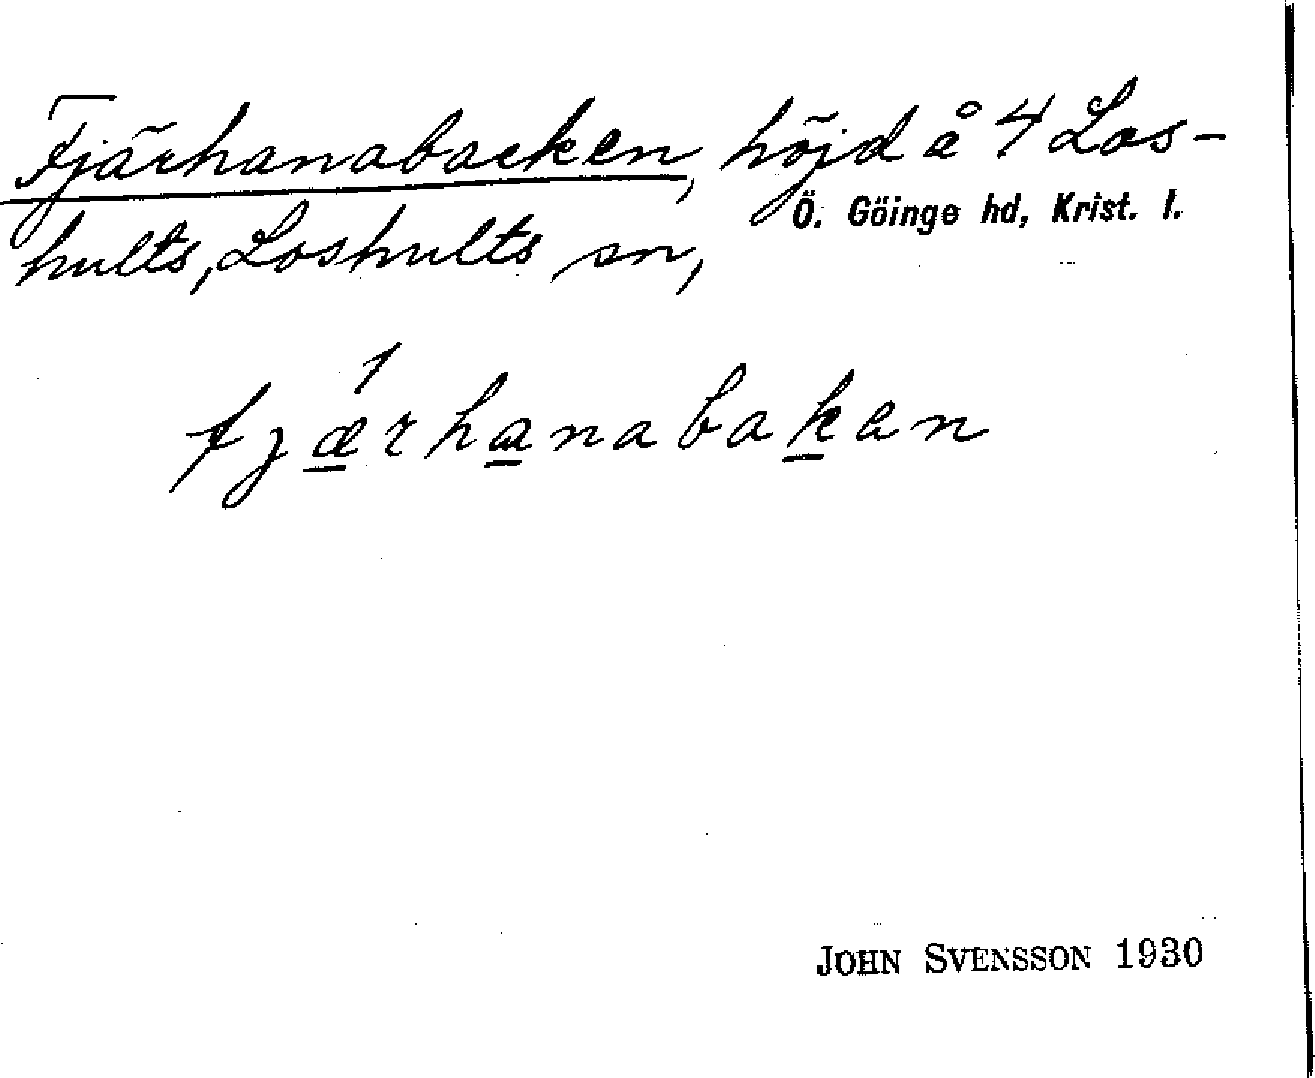 Fjärhanabacken, höjd å 4 Los-
hults, Loshults sn, Ö. Göinge hd, Krist. l.
1
fjærhanabakan
JOHN SVENSSON 1930